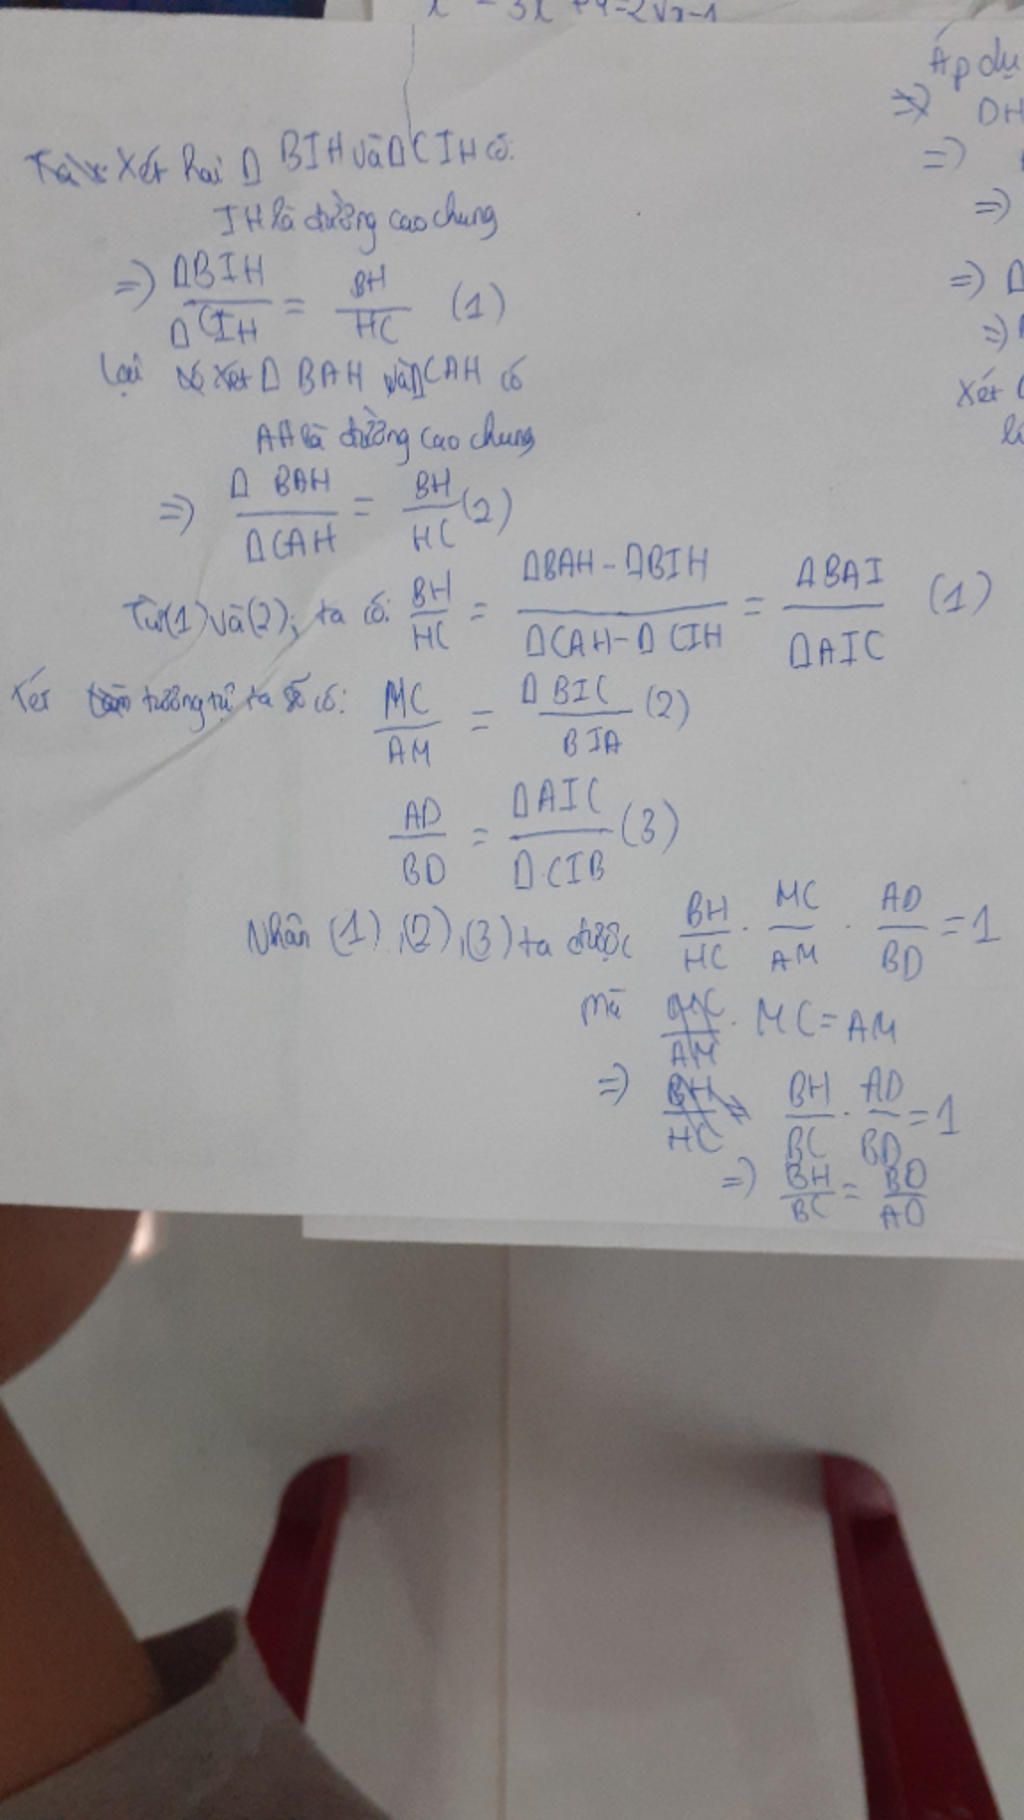 x - 3x + 4 = 2√x-1
Xét hai Δ BIH và ΔCIH có:
IH là đường cao chung
=> ΔBIH / ΔCIH = BH / HC (1)
Lại xét Δ BAH và ΔCAH có
AH là đường cao chung
=> Δ BAH / ΔCAH = BH / HC (2)
Từ (1) và (2), ta có: BH / HC = ΔBAH - ΔBIH / ΔCAH - ΔCIH = ΔBAI / ΔAIC (1)
Xét tương tự ta có: MC / AM = Δ BIC / BIA (2)
AD / BD = ΔAIC / Δ.CIB (3)
Nhân (1), (2), (3) ta được BH / HC . MC / AM . AD / BD = 1
mà MC = AM
=> BH / BC . AD / BD = 1
=> BH / BC = BD / AD
Áp dụ
=> DH
=>
=>
=> Δ
=>
Xét